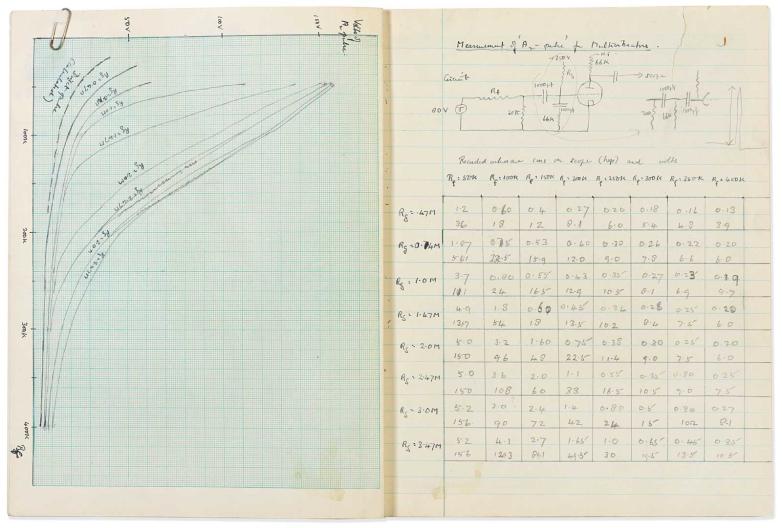 Volts of
A2 pulse
50V
100V
150V
Rg=0.47M
Rg=1M
Rg=1.47M
Rg=2.0M
Rg=2.47M
100K
200K
300K
400K
Measurement of A2 - pulse for Multivibrators.
Circuit
Rf
1000pf
66K
→ scope
and volts
Rf=50K Rf=100K Rf=150K Rf=200K Rf=250K Rf=300K Rf=350K Rf=400K
Rg=.47M 1.2 0.60 0.4 0.27 0.20 0.18 0.16 0.13
36 18 12 8.1 6.0 5.4 4.8 3.9
1.87 0.75 0.53 0.40 0.30 0.26 0.22 0.20
56.1 22.5 15.9 12.0 9.0 7.8 6.6 6.0
Rg=1.0M 3.7 0.80 0.55 0.43 0.35 0.27 0.23
111 24 16.5 12.9 10.5 8.1 6.9 5.7
Rg=1.47M 4.9 1.8 0.60 0.45 0.34 0.28 0.25 0.20
54 18 13.5 10.2 8.4 7.5 6.0
Rg=2.0M 5.0 3.2 1.60 0.75 0.38 0.30 0.25 0.20
150 96 48 22.5 11.4 9.0 7.5 6.0
Rg=2.47M 5.0 3.6 2.0 1.1 0.55 0.35 0.30 0.25
150 108 60 33 16.5 10.5 9.0 7.5
Rg=3.0M 5.2 3.0 2.4 1.4 0.80 0.5 0.27
156 90 72 42 24 15 8.1
Rg=3.47M 5.2 4.1 2.7 1.65 1.0 0.65 0.45 0.35
156 123 81 49.5 30 19.5 13.5 10.5